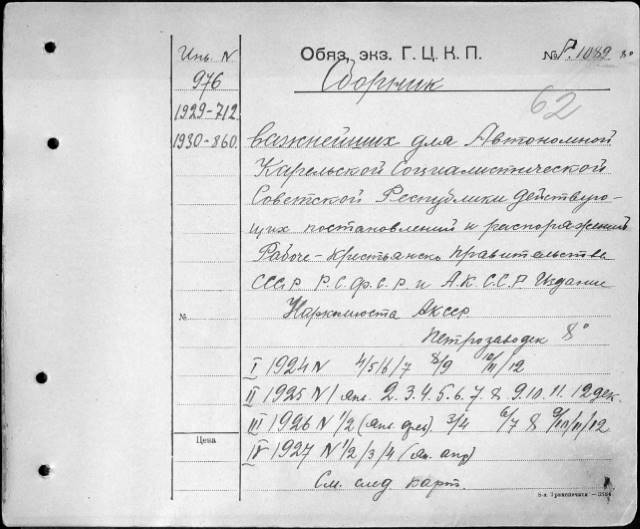 Инв. N
976
1929-712
1930-860
№
Цена
Обяз. экз. Г. Ц. К. П.
№ Г. 1089 8°
Сборник
62
важнейших для Автономной
Карельской Социалистической
Советской Республики действую-
щих постановлений и распоряжений
Рабоче-Крестьянско Правительства
СССР. Р.С.Ф.С.Р. и А.К.С.С.Р. Издание
Наркомюста АКССР.
Петрозаводск 8°
I 1924 N 4/5/6/7 8/9 10/11/12
II 1925 N 1 янв. 2. 3. 4. 5. 6. 7. 8. 9. 10. 11. 12 дек.
III 1926 N 1/2 (янв. фев) 3/4 6/7 8 9/10/11/12
IV 1927 N 1/2/3/4 (ян. апр)
См. след карт.